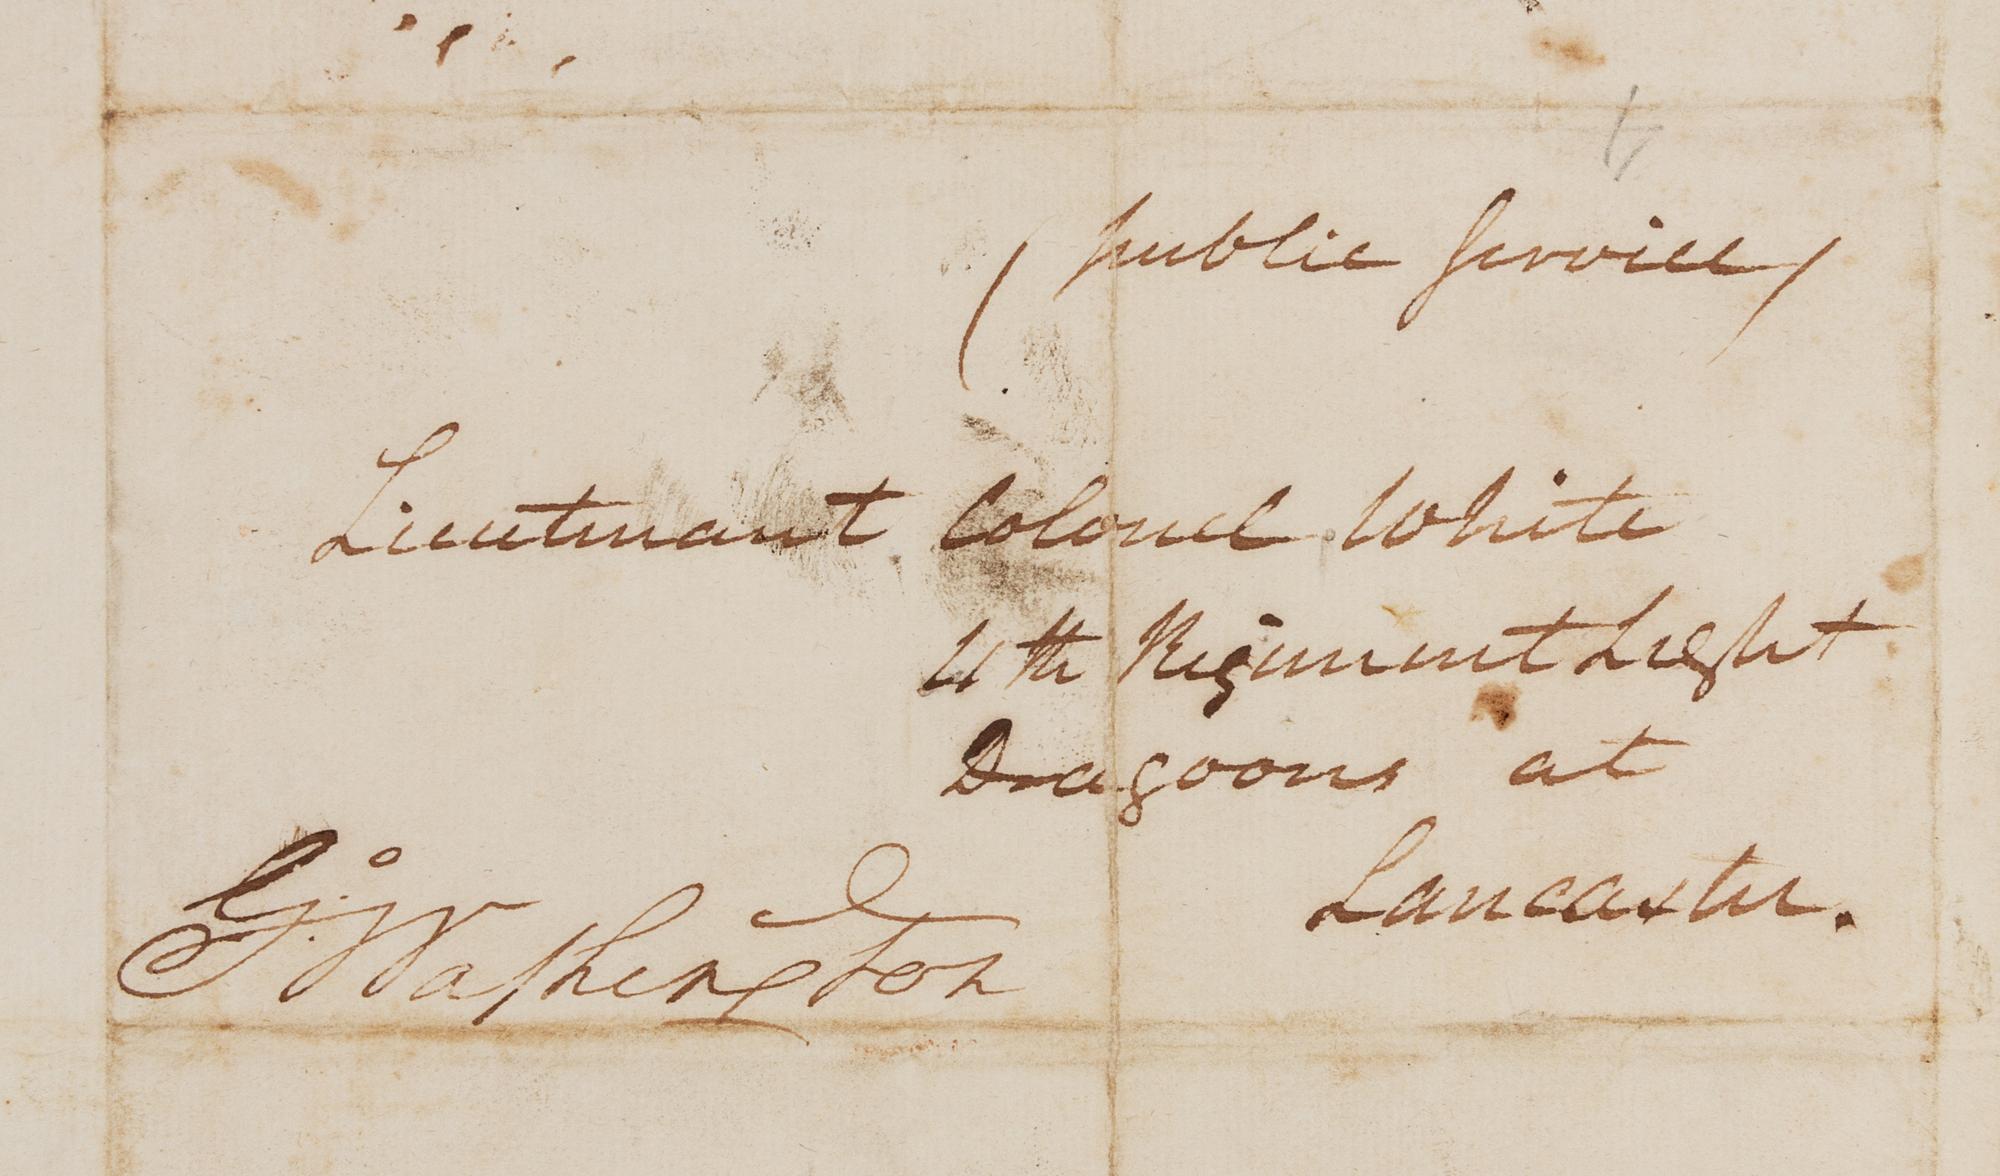 (public Service)
Lieutenant Colonel White
4th Regiment Light
Dragoons at
Lancaster.
G:Washington